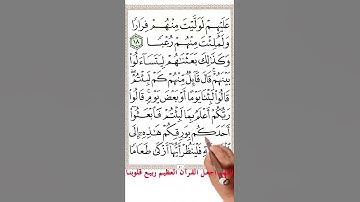 عَلَيْهِمْ لَوَلَّيْتَ مِنْهُمْ فِرَارًا
وَلَمُلِئْتَ مِنْهُمْ رُعْبًا ١٨
وَكَذَٰلِكَ بَعَثْنَٰهُمْ لِيَتَسَآءَلُوا۟
بَيْنَهُمْ قَالَ قَآئِلٌ مِّنْهُمْ كَمْ لَبِثْتُمْ
قَالُوا۟ لَبِثْنَا يَوْمًا أَوْ بَعْضَ يَوْمٍ قَالُوا۟
رَبُّكُمْ أَعْلَمُ بِمَا لَبِثْتُمْ فَٱبْعَثُوٓا۟
أَحَدَكُم بِوَرِقِكُمْ هَٰذِهِۦٓ إِلَى
فَلْيَنظُرْ أَيُّهَآ أَزْكَىٰ طَعَامًا
اجعل القرآن العظيم ربيع قلوبنا